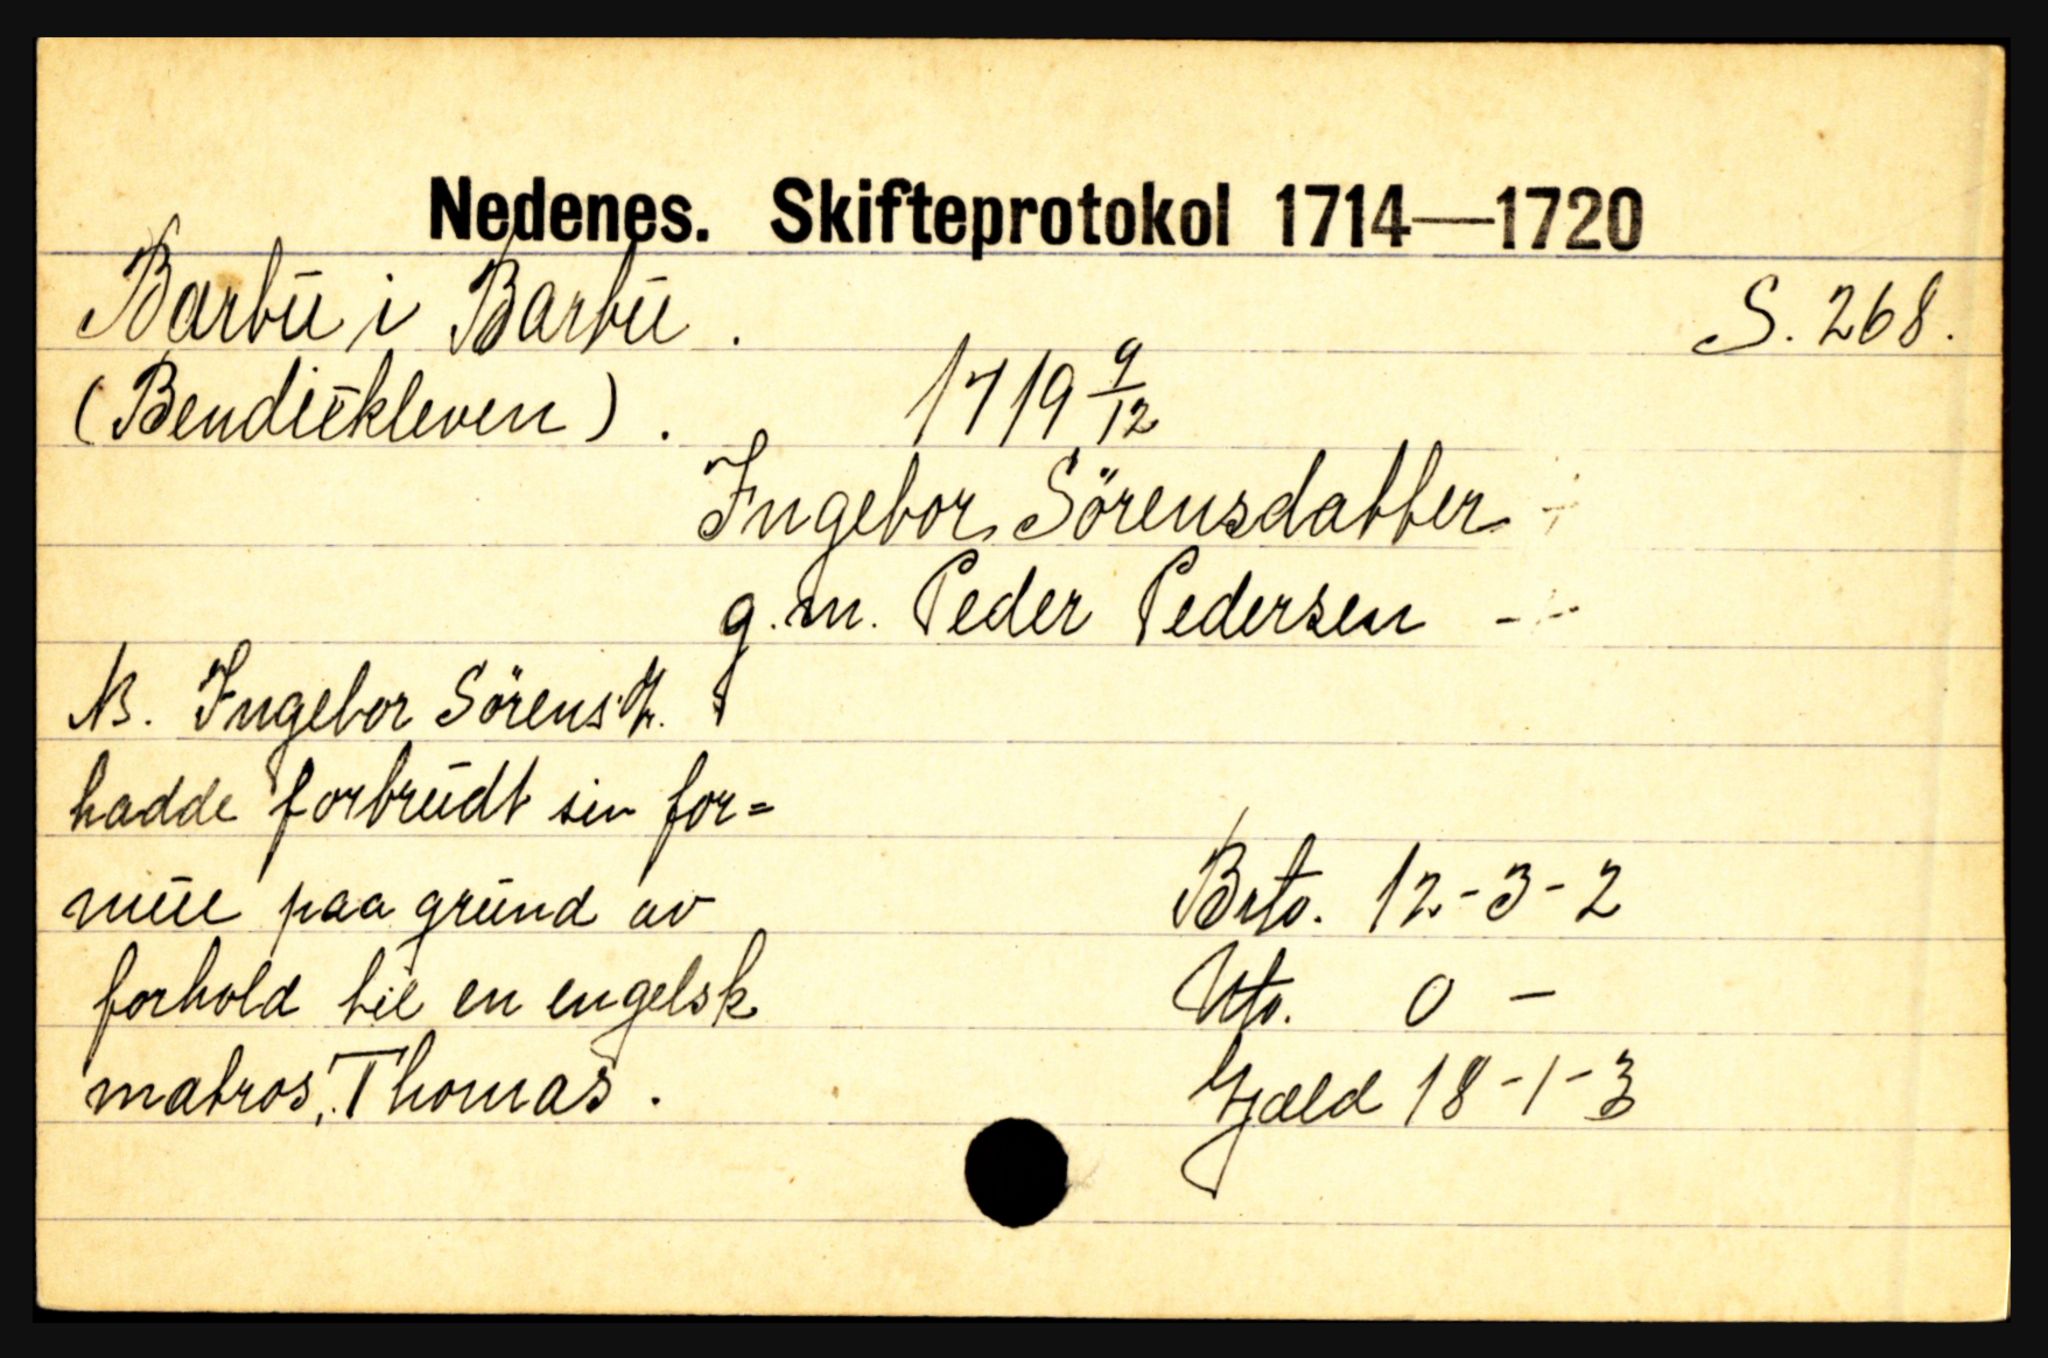 Nedenes. Skifteprotokol 1714—1720
Barbu i Barbu. S. 268.
(Bendixkleven). 1719 9/12
Ingebor Sörensdatter
g. m. Peder Pedersen
NB. Ingebor Sörensdtr.
hadde forbrudt sin for=
mue paa grund av
forhold til en engelsk
matros, Thomas.
Brto. 12-3-2
Nto. 0 -
Gjæld 18-1-3